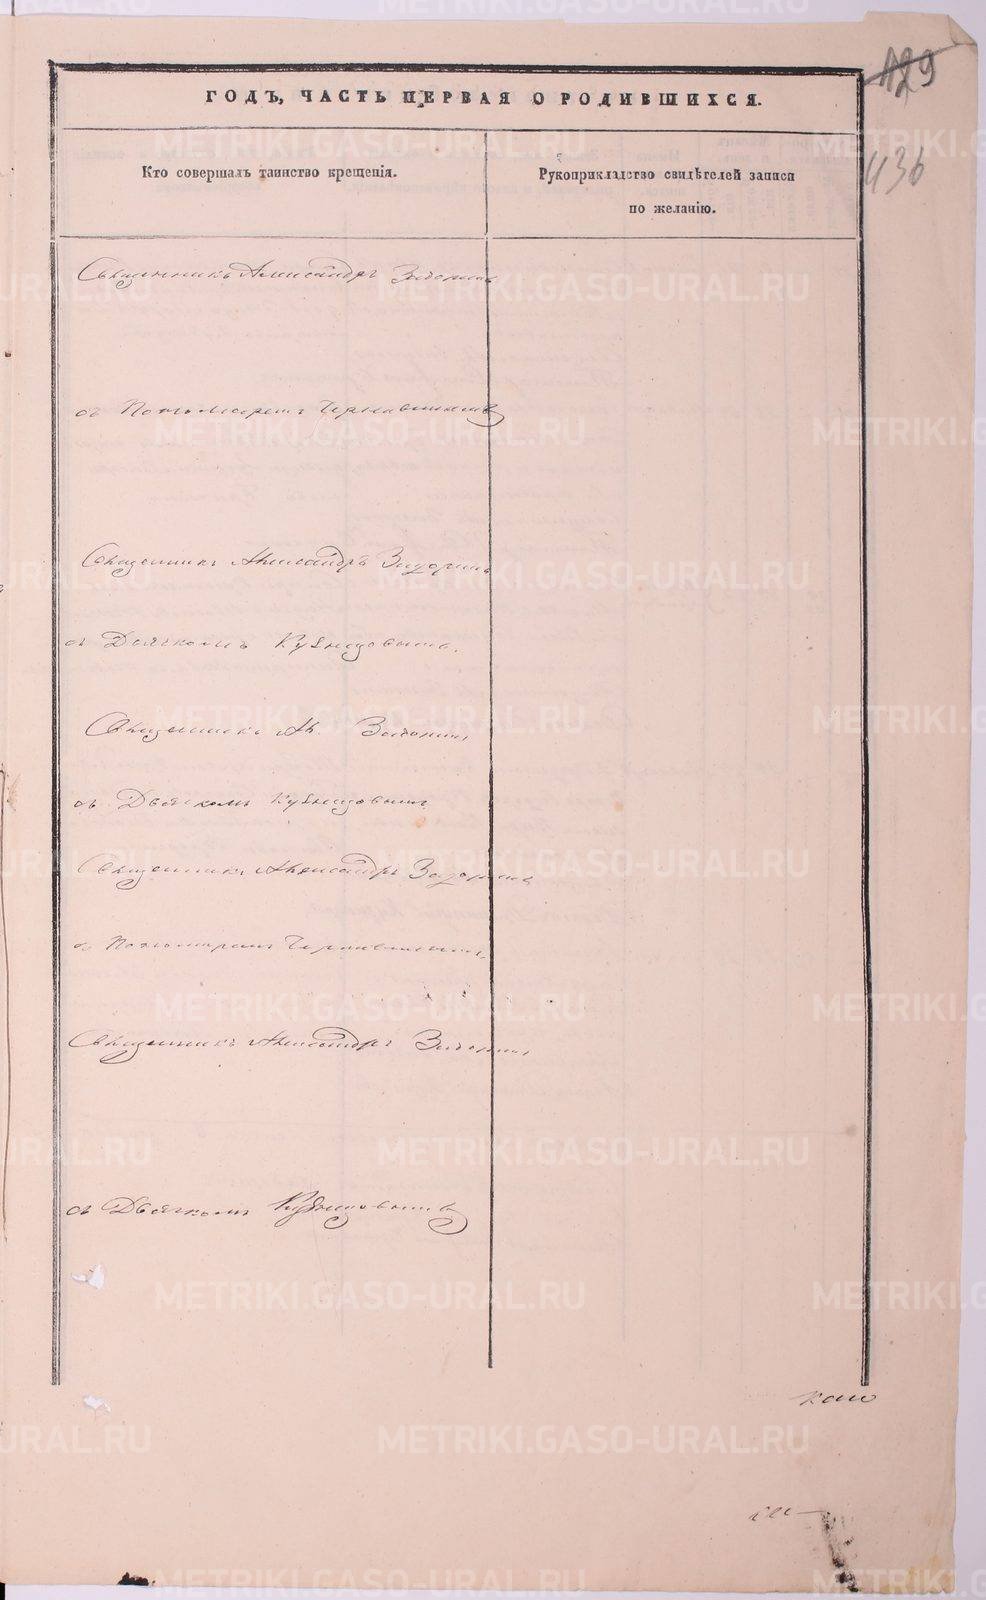 129
436
ГОДЪ, ЧАСТЬ ПЕРВАЯ О РОДИВШИХСЯ.
Кто совершалъ таинство крещенія.
Рукоприкладство свидѣтелей записи
по желанію.
Священникъ Александръ
съ Пономаремъ Чернавинымъ
Священникъ Александръ
съ Дьячкомъ Кузнецовымъ.
Священникъ Ал.
съ Дьячкомъ Кузнецовымъ
Священникъ Александръ
съ Пономаремъ Чернавинымъ.
Священникъ Александръ
съ Дьячкомъ Кузнецовымъ
METRIKI.GASO-URAL.RU